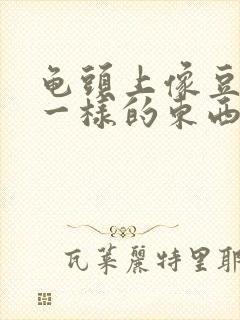 龟頭上像豆
一樣的東西
瓦莱麗特里耶